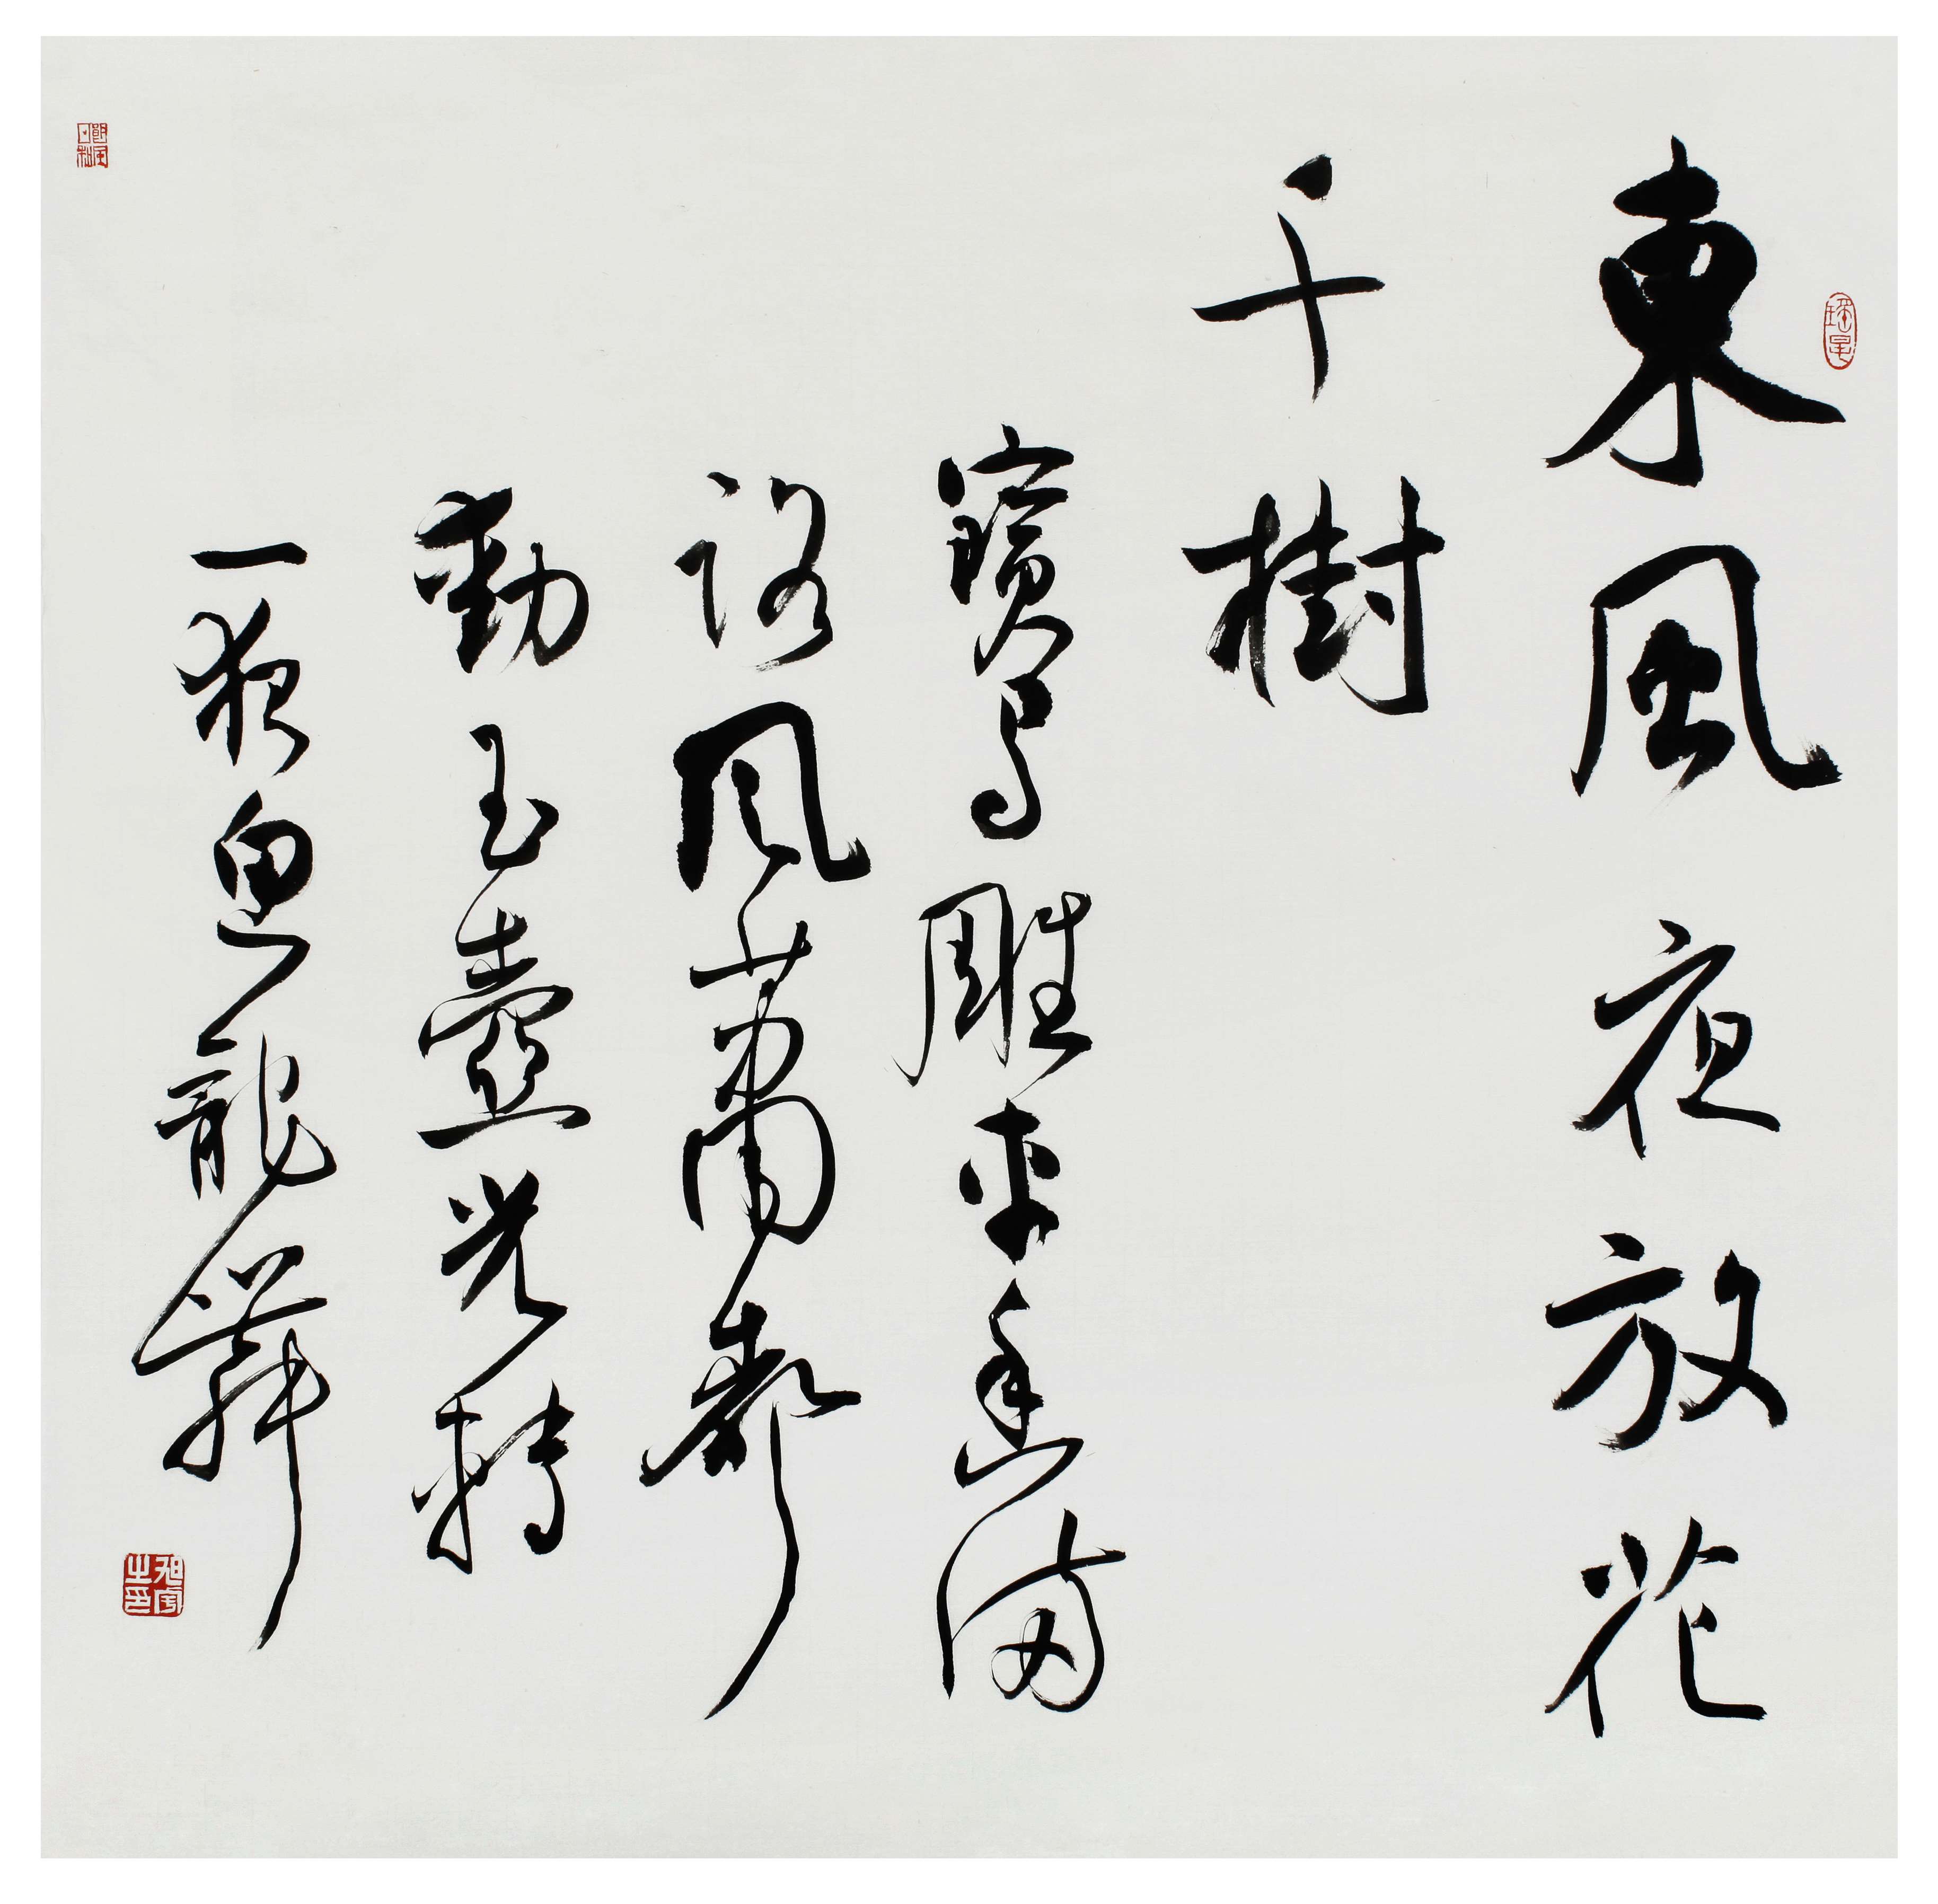 東風夜放花
千樹
寶馬雕車香滿
路鳳簫聲
動玉壺光轉
一夜魚龍舞
旭宇之印